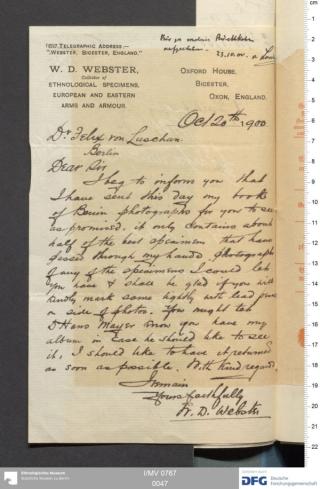 TELEGRAPHIC ADDRESS:—
"WEBSTER, BICESTER, ENGLAND."
W. D. WEBSTER,
Collector of
ETHNOLOGICAL SPECIMENS,
EUROPEAN AND EASTERN
ARMS AND ARMOUR.
23.10.00.
OXFORD HOUSE,
BICESTER,
OXON, ENGLAND.
Oct 20th 1900
Dr Felix von Luschan.
Berlin
Dear Sir
I beg to inform you that
I have sent this day my book
of Benin photographs for you to see
as promised. it only contains about
half of the best specimens that have
passed through my hands, photographs
of any of the specimens I could let
you have & shall be glad if you will
kindly mark same lightly with lead
on side of photos. You might tell
Dr Hans Mayer know you have my
album in case he should like to see
it, I should like to have it returned
as soon as possible. With kind regards
I remain
Yours faithfully
W. D. Webster
Ethnologisches Museum
I/MV 0767
0047
DFG
Deutsche
Forschungsgemeinschaft
2
3
4
5
6
7
8
9
10
11
12
13
14
15
16
17
18
19
20
21
22